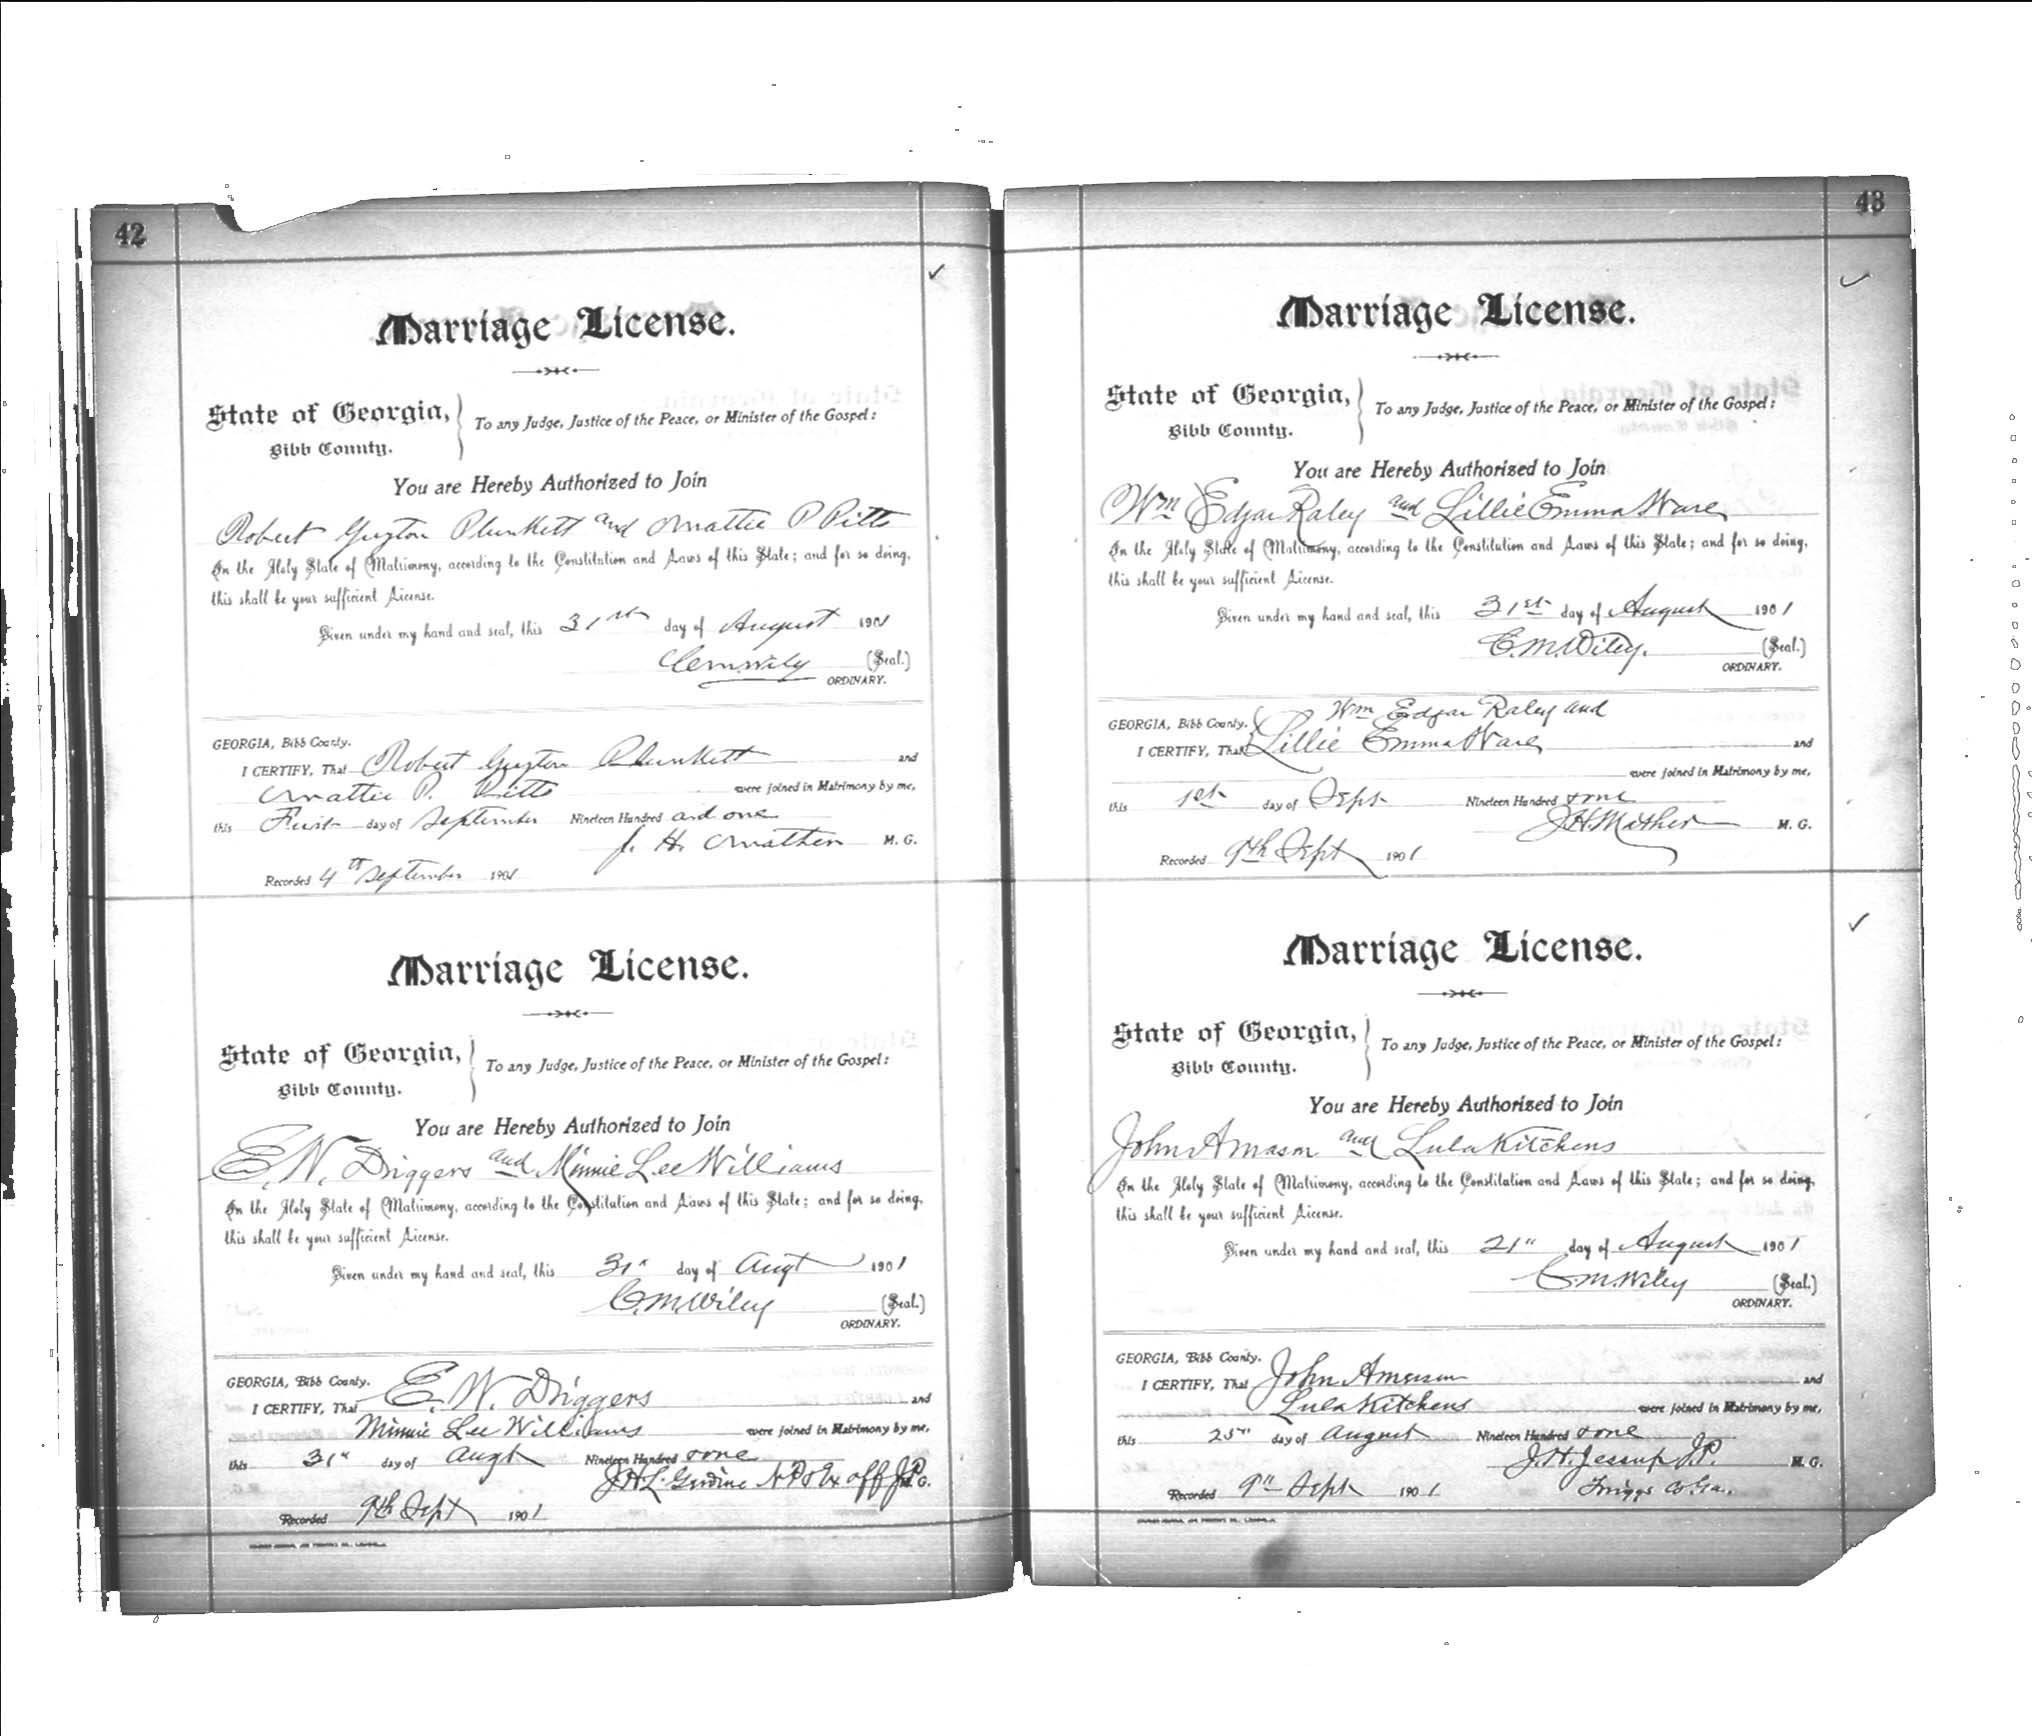 42
Marriage License.
State of Georgia,
Bibb County.
To any Judge, Justice of the Peace, or Minister of the Gospel:
You are Hereby Authorized to Join
Robert Guyton Plunkett and Mattie P Pitts
In the Holy State of Matrimony, according to the Constitution and Laws of this State; and for so doing,
this shall be your sufficient License.
Given under my hand and seal, this 31st day of August 1901
C.m.wily (Seal.)
ORDINARY.
GEORGIA, Bibb County.
I CERTIFY, That Robert Guyton Plunkett and
Mattie P. Pitts were joined in Matrimony by me,
this First day of September Nineteen Hundred and one
J. H. Mather M. G.
Recorded 4th September 1901
Marriage License.
State of Georgia,
Bibb County.
To any Judge, Justice of the Peace, or Minister of the Gospel:
You are Hereby Authorized to Join
E. W. Driggers and Minnie Lee Williams
In the Holy State of Matrimony, according to the Constitution and Laws of this State; and for so doing,
this shall be your sufficient License.
Given under my hand and seal, this 31" day of Augt 1901
C.M.Wiley (Seal.)
ORDINARY.
GEORGIA, Bibb County.
I CERTIFY, That E. W. Driggers and
Minnie Lee Williams were joined in Matrimony by me,
this 31" day of Augt Nineteen Hundred & one
J.H.L. Gerdine N.P. & Ex off J.P. G.
Recorded 9th Sept 1901
43
Marriage License.
State of Georgia,
Bibb County.
To any Judge, Justice of the Peace, or Minister of the Gospel:
You are Hereby Authorized to Join
Wm Edgar Raley and Lillie Emma Ware
In the Holy State of Matrimony, according to the Constitution and Laws of this State; and for so doing,
this shall be your sufficient License.
Given under my hand and seal, this 31st day of August 1901
C.M.Wiley. (Seal.)
ORDINARY.
GEORGIA, Bibb County. Wm Edgar Raley and
I CERTIFY, That Lillie Emma Ware and
were joined in Matrimony by me,
this 1st day of Sept Nineteen Hundred & one
J.H. Mather M. G.
Recorded 9th Sept 1901
Marriage License.
State of Georgia,
Bibb County.
To any Judge, Justice of the Peace, or Minister of the Gospel:
You are Hereby Authorized to Join
John Amason and Lula Kitchens
In the Holy State of Matrimony, according to the Constitution and Laws of this State; and for so doing,
this shall be your sufficient License.
Given under my hand and seal, this 21" day of August 1901
C.M.Wiley (Seal.)
ORDINARY.
GEORGIA, Bibb County.
I CERTIFY, That John Amerson and
Lula Kitchens were joined in Matrimony by me,
this 25" day of August Nineteen Hundred & one
J.H. Jessup J.P. M. G.
Recorded 9th Sept 1901 Twiggs Co Ga.